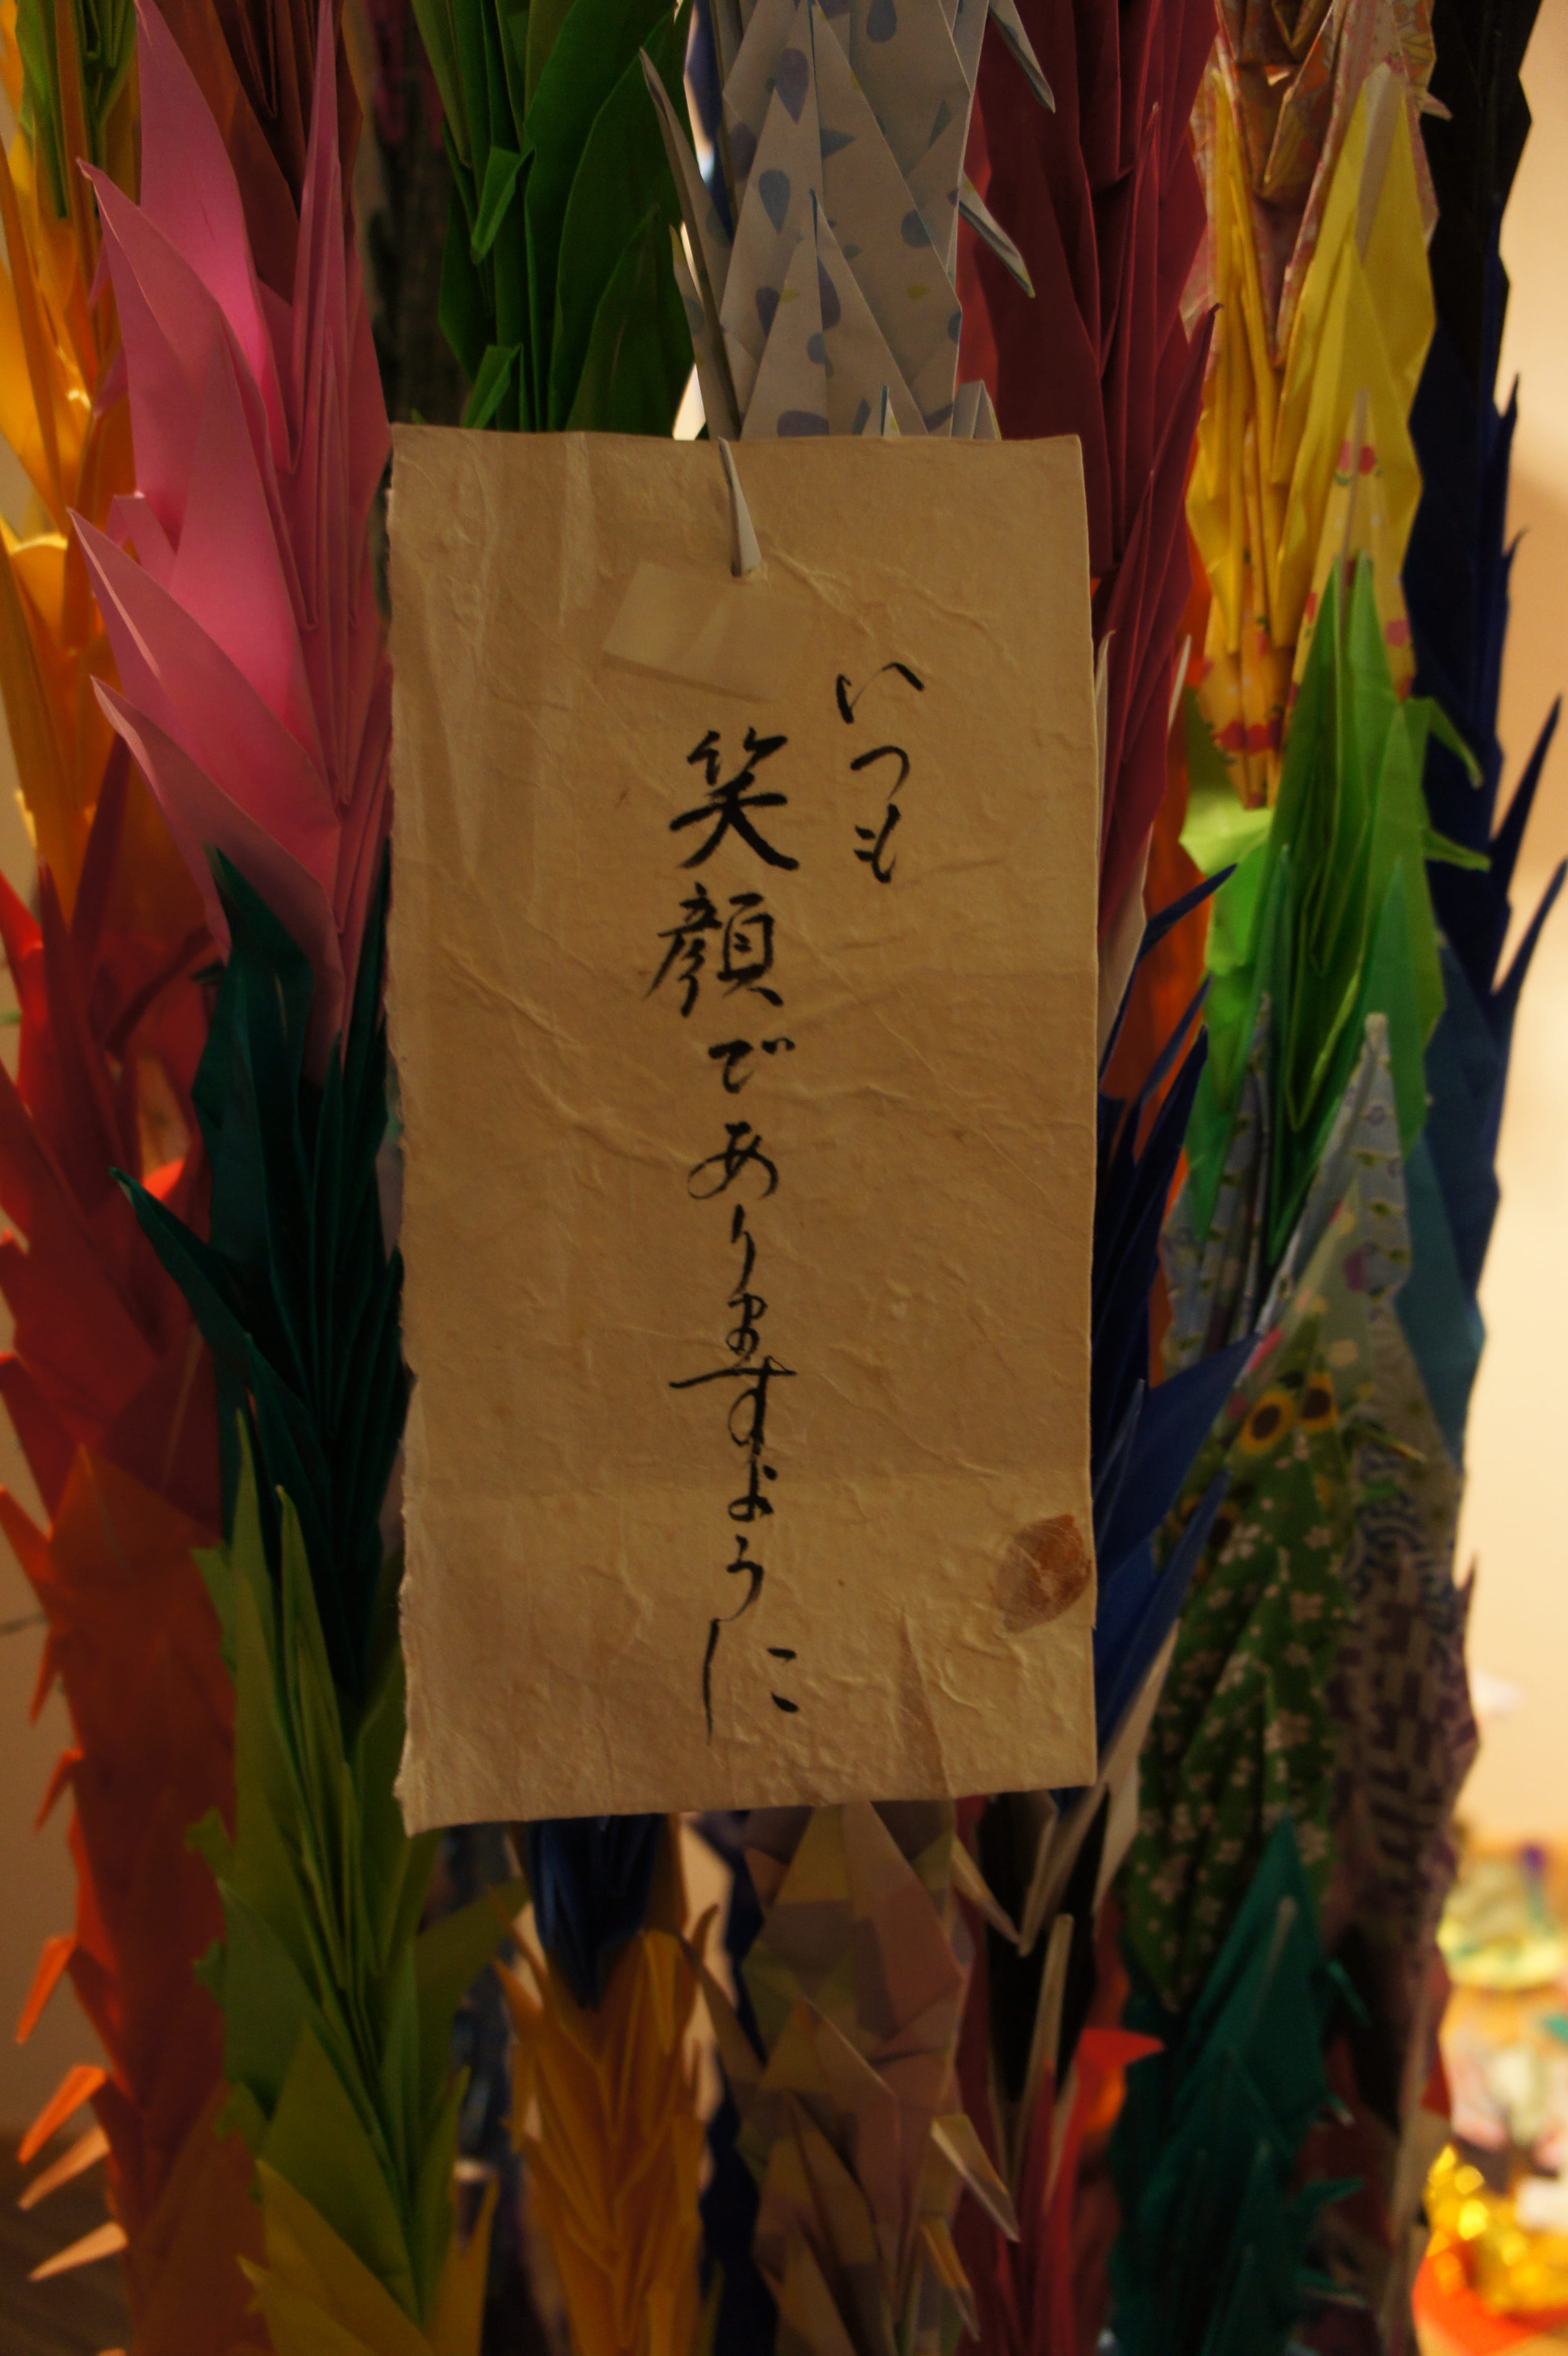 いつも
笑顔でありますように